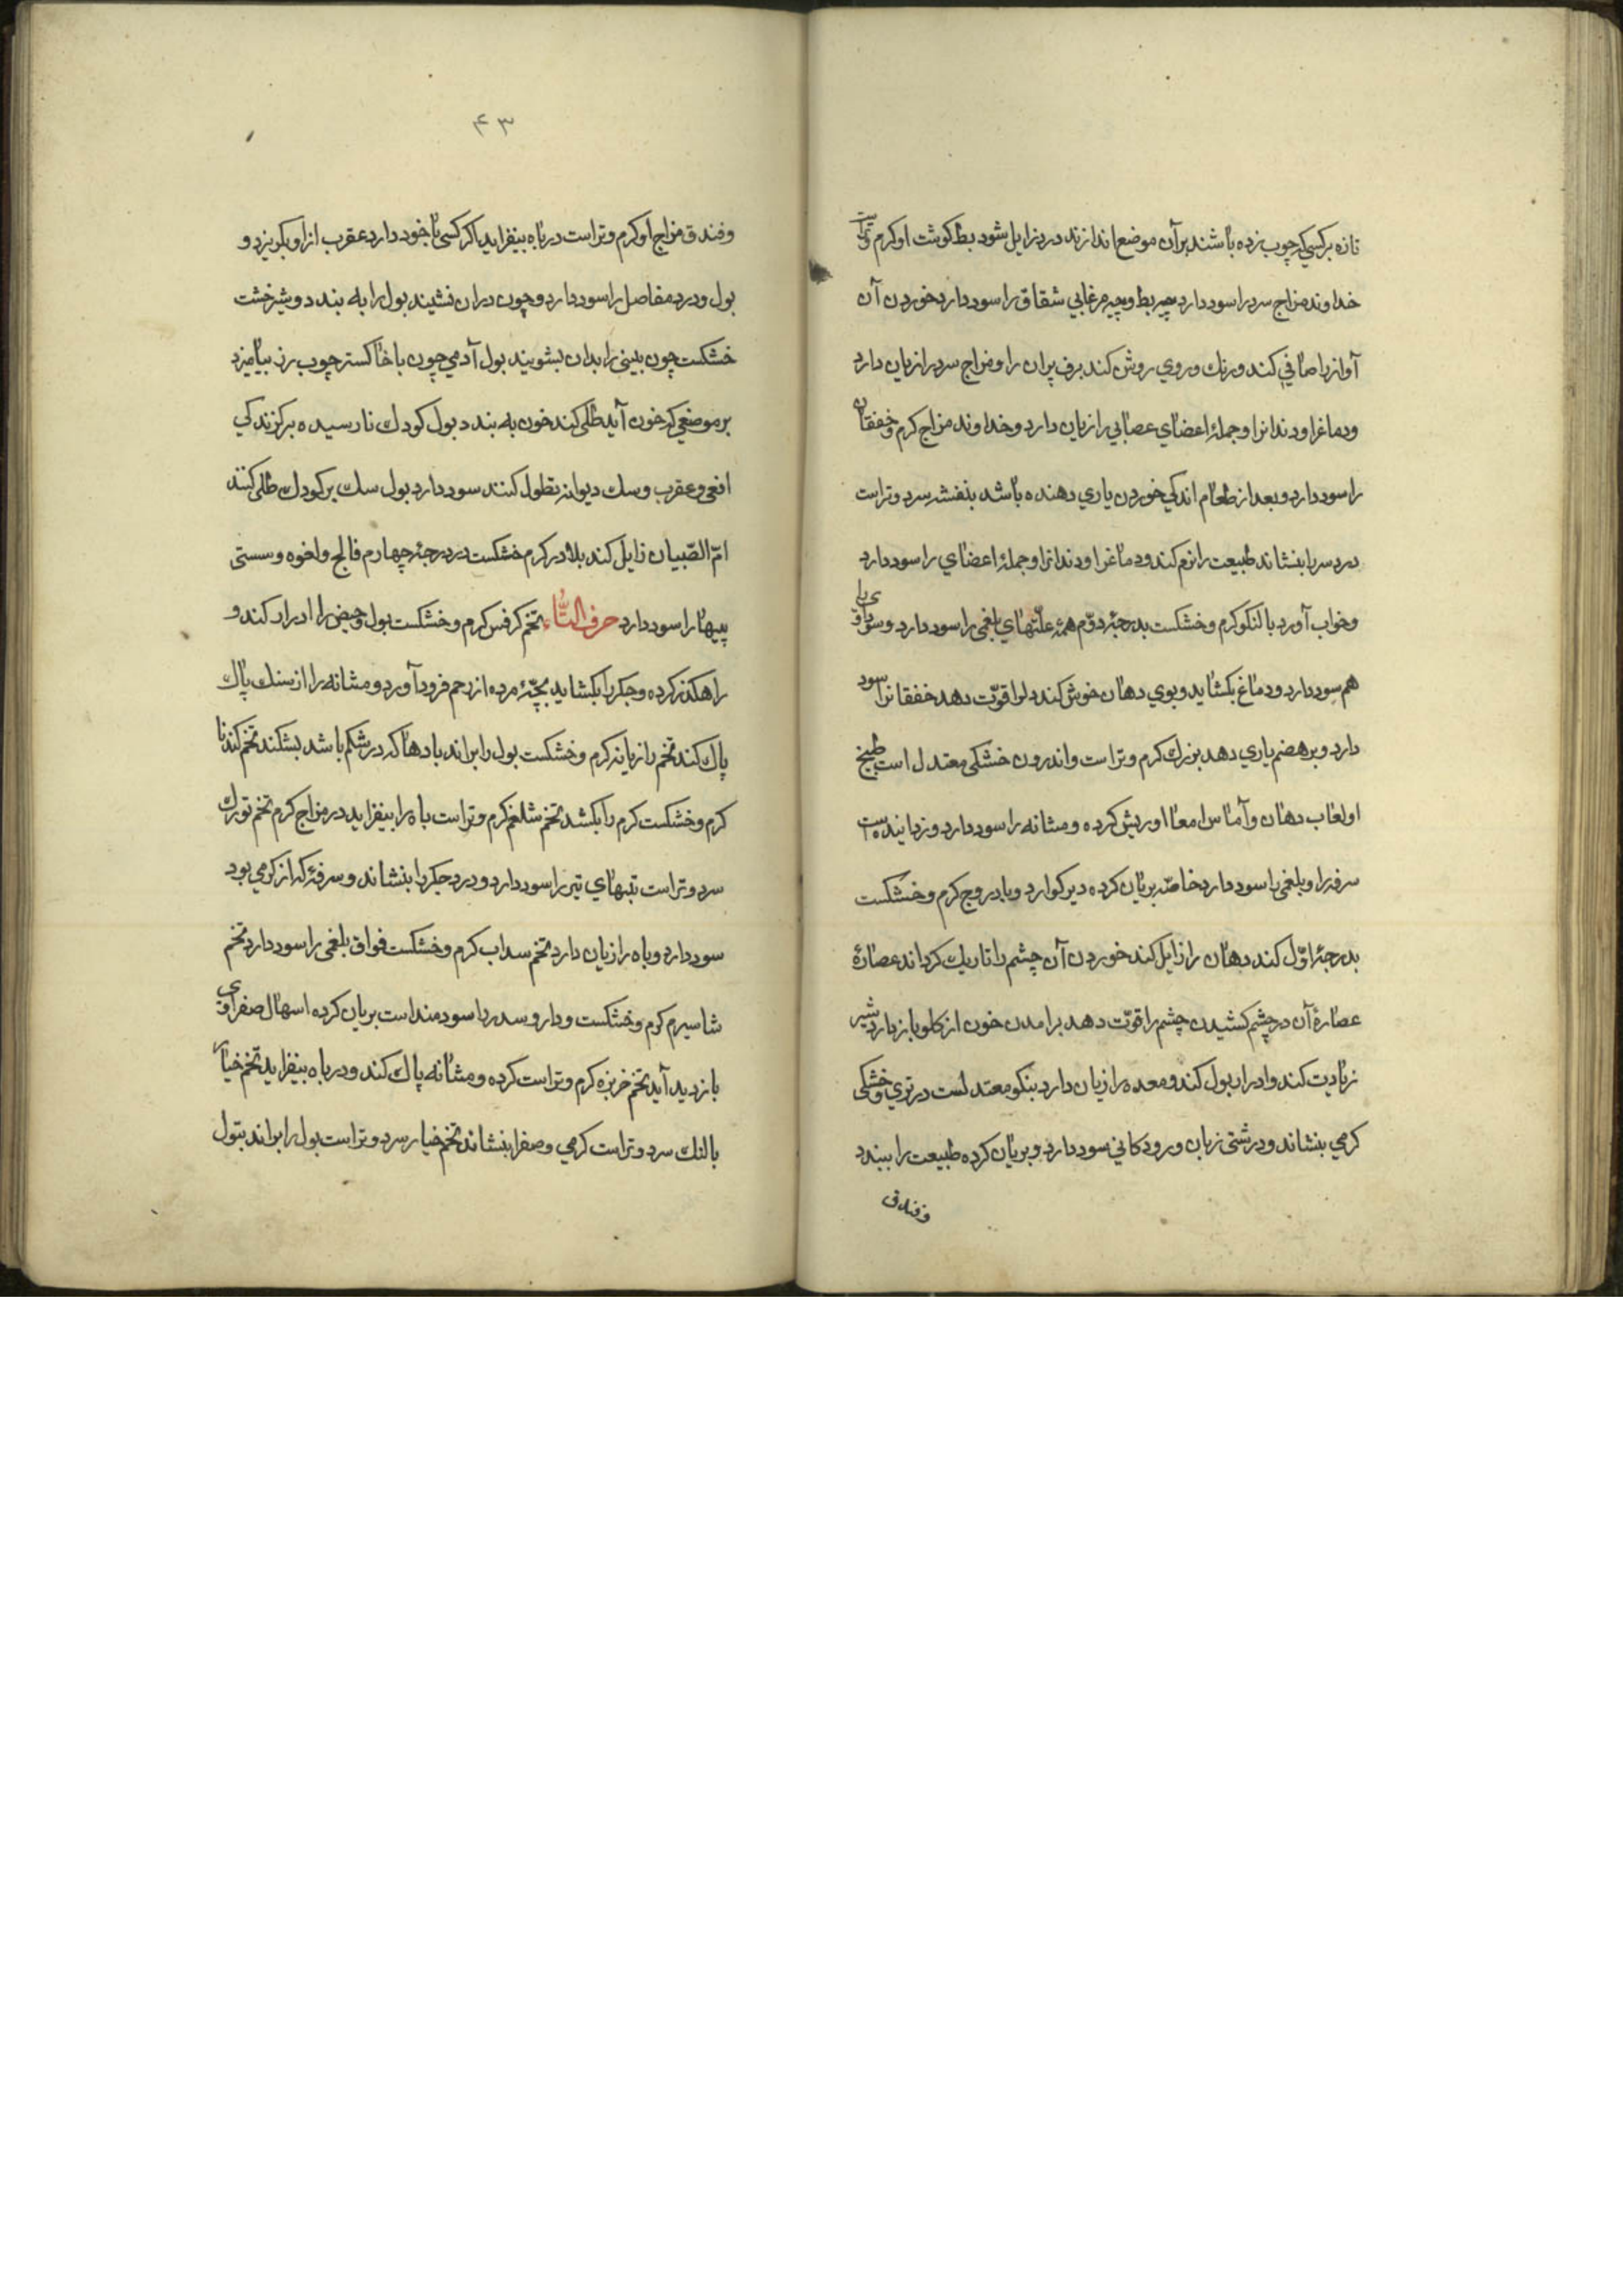 تازه برکسی که چوب زده باشند بر آن موضع اندازند درد زایل شود بط کوشت او کرم و تراست
خداوند مزاج سرد را سود دارد پیه بط و پیه مرغابی شقاق را سود دارد خوردن آن
آواز را صافی کند و رنك و روی روشن کند برف پیران را و مزاج سرد را زیان دارد
ودماغ را و دندانرا و جملۀ اعضای عصبانی را زیان دارد و خداوند مزاج کرم و خفقان
را سود دارد و بعد از طعام اندکی خوردن یاری دهنده باشد بنفشه سرد و تراست
درد سر را بنشاند طبیعت را نرم کند و دماغ را و دندانرا و جملۀ اعضای را سود دارد
و خواب آورد بالنکو کرم و خشکست بدرجۀ دوّم همۀ علّتهای بلغمی را سود دارد و سوداوی را
هم سود دارد و دماغ بکشاید و بوی دهان خوش کند دلرا قوّت دهد خفقانرا سود
دارد و بر هضم یاری دهد بزرك کرم و تراست و اندرون خشکی معتدل است طبیخ
او لعاب دهان و آماس امعا او ریش کرده و مثانه را سود دارد و زدایندهاست
سرفه را و بلغمی را سود دارد خاصّه بریان کرده دیر کوارد و بادروج کرم و خشکست
بدرجۀ اوّل کند دهان را زایل کند خوردن آن چشم را تاریك کرداند عصارۀ
عصارۀ آن در چشم کشیدن چشم را قوّت دهد برامدن خون از کلو باز دارد شیر
زیادت کند و ادرار بول کند و معده را زیان دارد بنکو معتدلست در تری و خشکی
کرمی بنشاند و درشتی زبان و رودکانی سود دارد و بریان کرده طبیعت را ببندد
و فندق
۴۳
و فندق مزاج او کرم و تراست در باه بیفزاید اکر کسی با خود دارد عقرب از او بکریزد و
بول و درد مفاصل را سود دارد و چون در ان نشیند بول را به بندد و شیرخشت
خشکست چون بینی را بدان بشویند بول آدمی چون با خاکستر چوب رز بیامیزد
بر موضعی که خون آید طلی کند خون به بندد بول کودك نارسیده بر کزندکی
افعی و عقرب و سك دیوانه نطول کنند سود دارد بول سك بر کودك طلی کنند
امّ الصّبیان زایل کند بلادر کرم خشکست در درجۀ چهارم فالج و لغوه و سستی
پیهارا سود دارد حرف التّاء تخم کرفس کرم و خشکست بول و حیض را ادرار کند و
راهکذر کرده و جکر را بکشاید بچّۀ مرده از رحم فرود آورد و مثانه را از سنك پاك
پاك کند تخم رازیانه کرم و خشکست بول را براند بادها که در شکم باشد بشکند تخم کندنا
کرم و خشکست کرم را بکشد تخم شلغم کرم و تراست باه را بیفزاید در مزاج کرم تخم تورك
سرد و تراست تبهای تیز را سود دارد و درد جکر را بنشاند و سرفۀ که از کرمی بود
سود دارد و باه را زیان دارد تخم سداب کرم و خشکست فواق بلغمی را سود دارد تخم
شاسپرم کرم و خشکست و دارو سدر را سودمند است بریان کرده اسهال صفراوی
بازدید آید تخم خربزه کرم و تراست کرده و مثانه پاك کند و در باه بیفزاید تخم خیار
بالنك سرد و تراست کرمی و صفرا بنشاند تخم خیار سرد و تراست بول را براند بتول